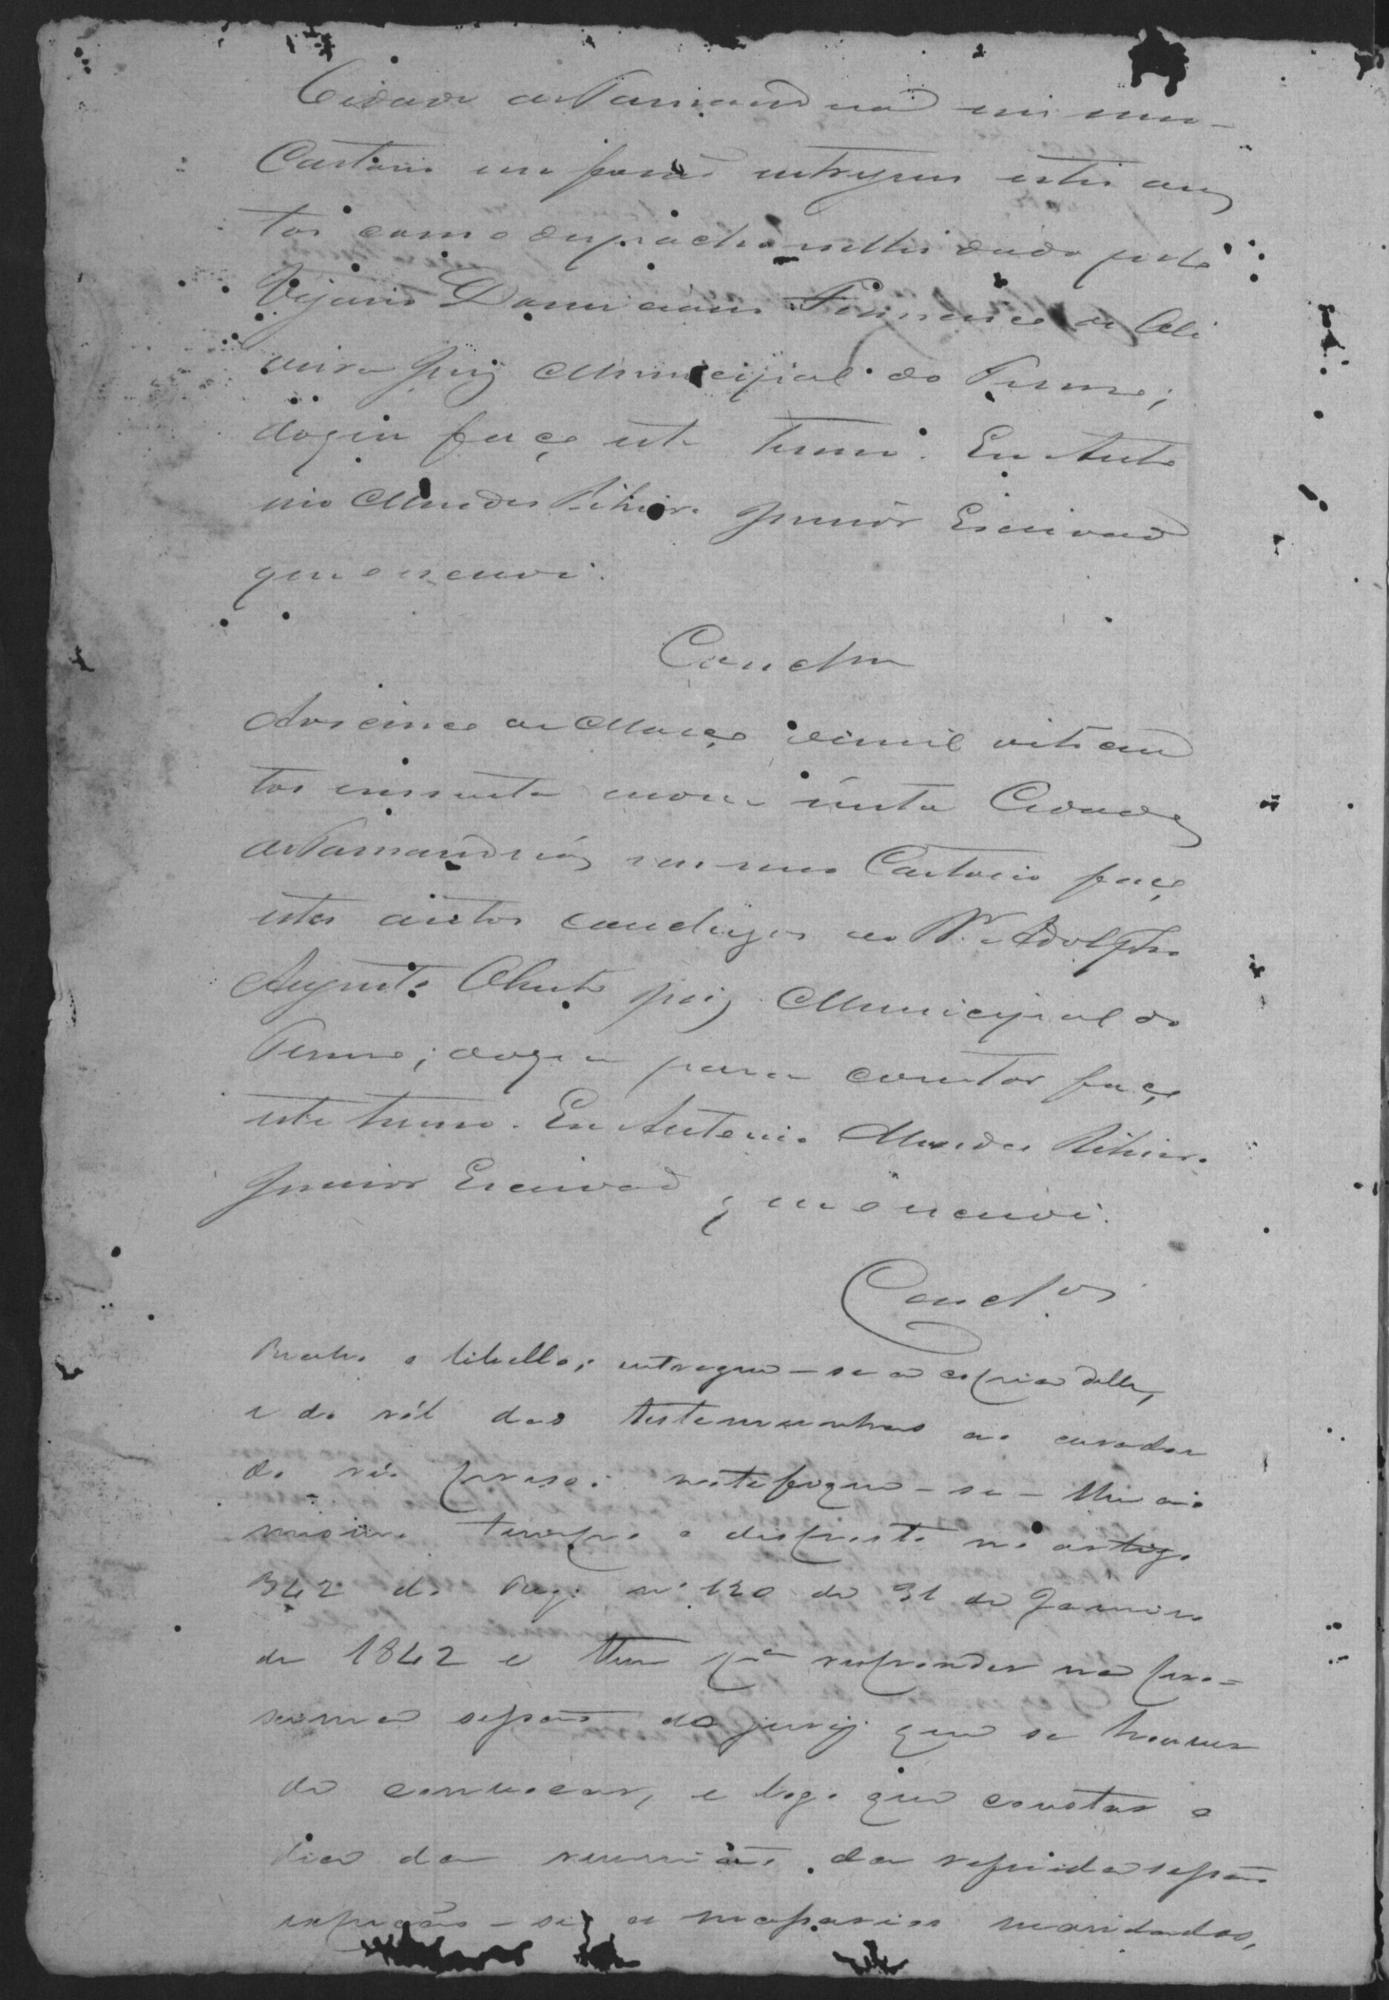 Cidade de Tamandua em meu
Cartorio me forão entregues estes au
tos com o despacho nelles dado pelo
Vigario Domiciano Francisco de Oli
veira Juiz Municipal do Termo;
do que faço este termo. Eu Anto
nio Mendes Ribeiro Junior Escrivão
que o escrevi.
Conclm
Aos cinco de Março de mil oitocen
tos e sessenta e nove nesta Cidade
de Tamanduá em meu Cartorio faço
estes autos conclusos ao Dr. Adolpho
Augusto Olinto Juiz Municipal do
Termo; do que para constar faço
este termo. Eu Antonio Mendes Ribeiro
Junior Escrivão que o escrevi.
Concl.os
Recebo o libello; entregue-se a copia delle,
e doról das testemunhas ao curador
do réo preso; notifique-se-lhe ao
mesmo tempo o disposto no artigo
342 do Reg. nº 120 de 31 de Janeiro
de 1842 e bem pa responder na pro-
xima sessão do jury que se houver
de convocar, e logo que constar o
dia da reunião da referida sessão
expeção-se os necessarios mandados,